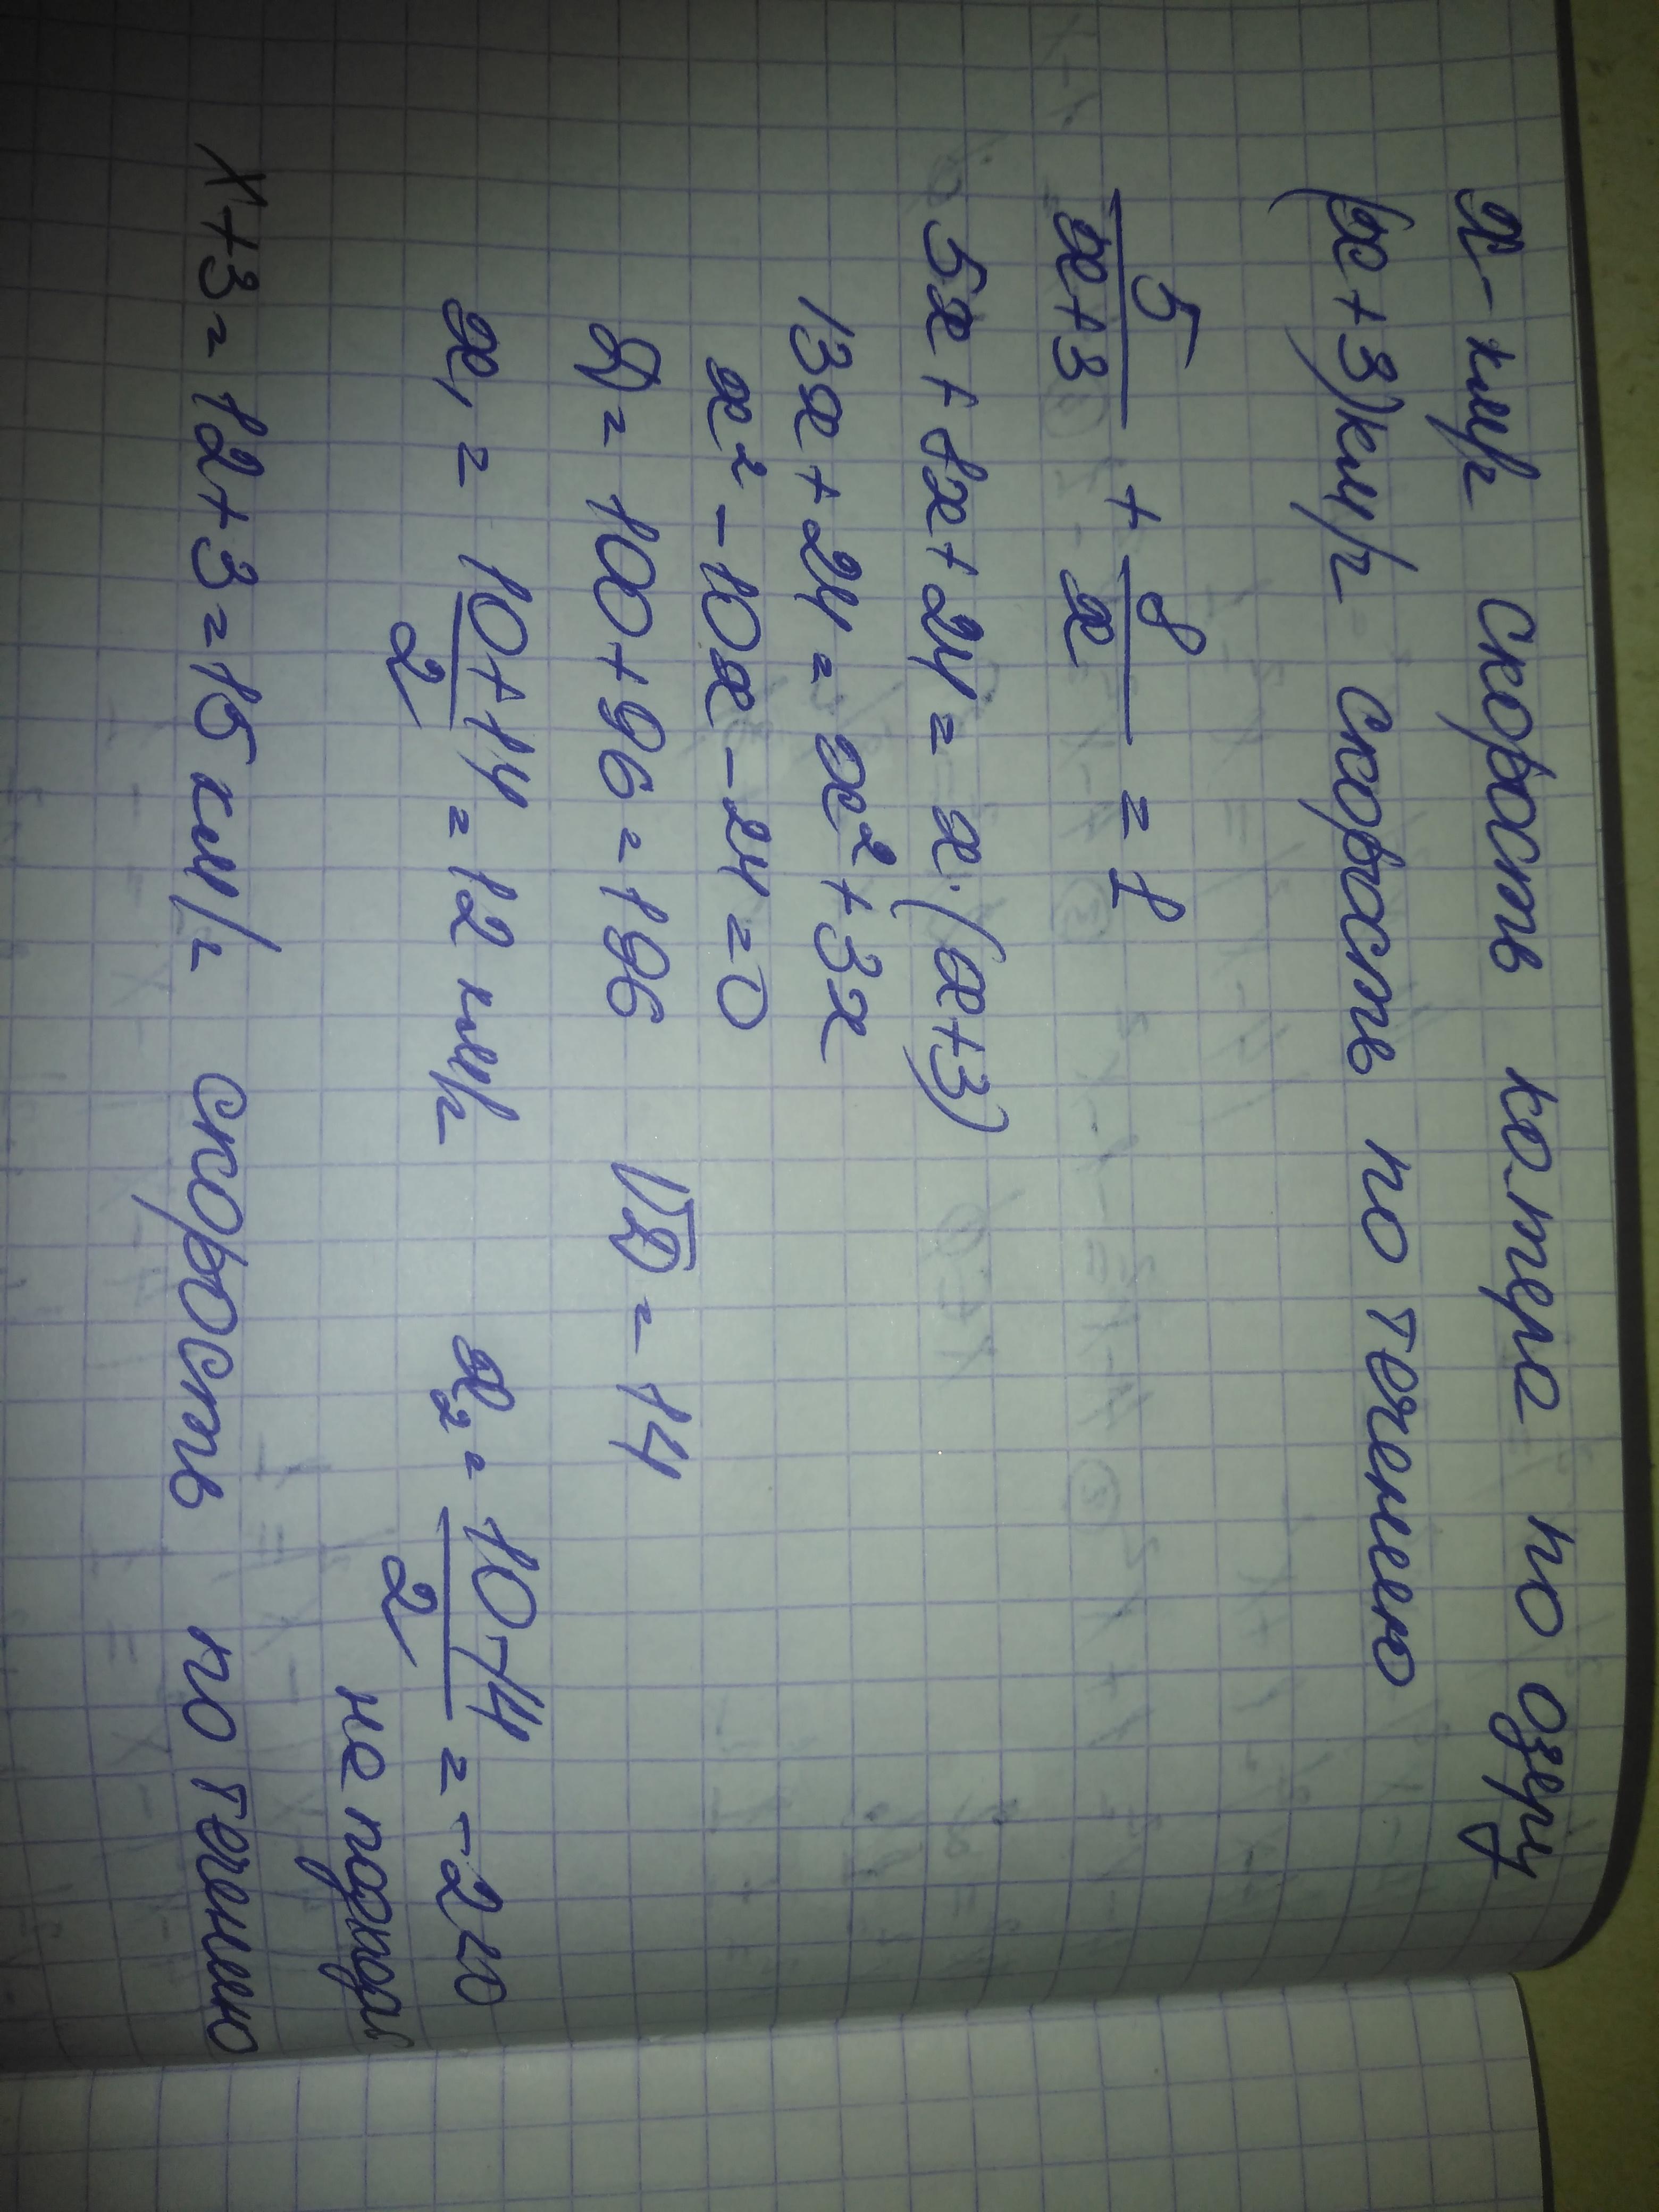 x - км/г скорость катера по озеру
(x+3) км/г - скорость по течению
5/(x+3) + 8/x = 1
5x + 8x + 24 = x·(x+3)
13x + 24 = x² + 3x
x² - 10x - 24 = 0
D = 100 + 96 = 196 √D = 14
x₁ = (10+14)/2 = 12 км/г x₂ = (10-14)/2 = -2
не подход
x+3 = 12+3 = 15 км/г скорость по течению